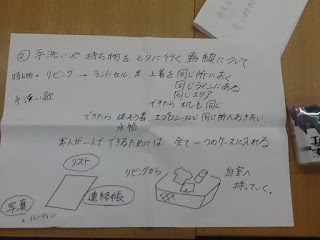 ② 手洗いや 持ち物を とりに行く 動線について
持ち物。リビング → ランドセル、 上着を 同じ所におく
同じラインにある
手洗い 同じエリア
できたら 同じ
できたら エプロンなど 同じ所へおきたい。
水筒
本人が一人で できるためには 全て 一つのケースに入れる
リスト
リビングから 自室へ
持っていく。
写真 連絡帳
+ ルーティン